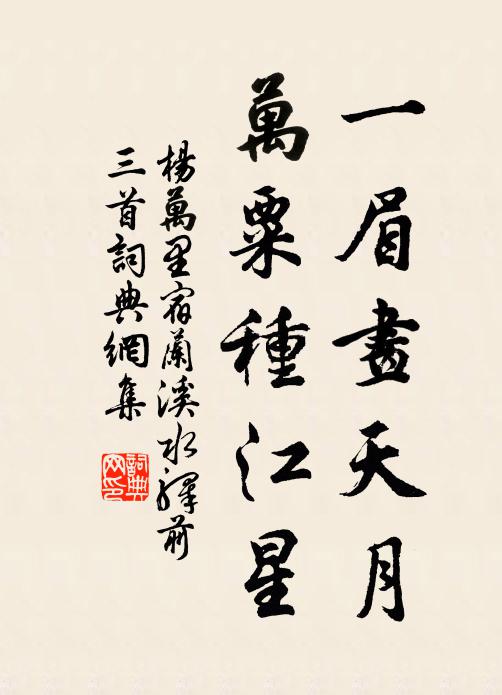 一眉畫天月
萬粟種江星
楊萬里宿蘭溪水驛前
三首詞典網集
詞典
网印